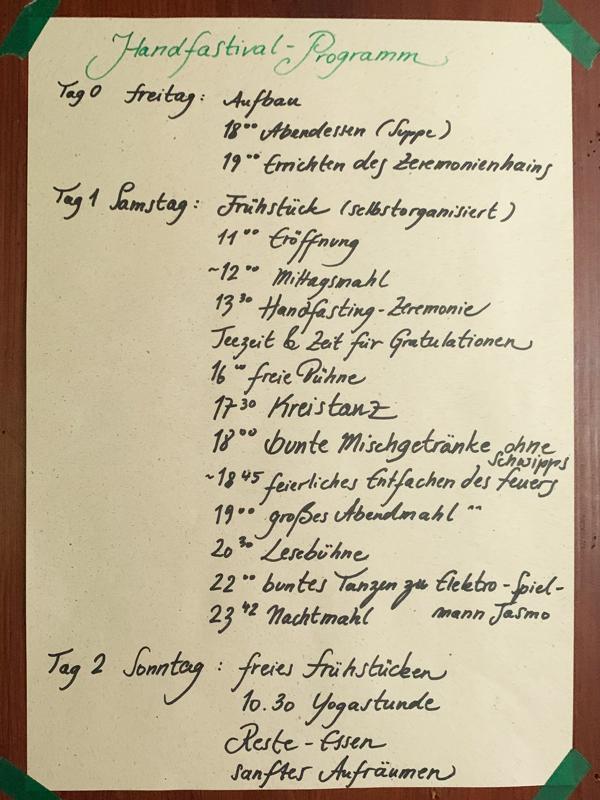 Handfastival-Programm
Tag 0 Freitag: Aufbau
18⁰⁰ Abendessen (Suppe)
19⁰⁰ Errichten des Zeremonienhains
Tag 1 Samstag: Frühstück (selbstorganisiert)
11⁰⁰ Eröffnung
~12⁰⁰ Mittagsmahl
13³⁰ Handfasting-Zeremonie
Teezeit & Zeit für Gratulationen
16⁰⁰ freie Bühne
17³⁰ Kreistanz
18⁰⁰ bunte Mischgetränke ohne
Schwipps
~18⁴⁵ feierliches Entfachen des Feuers
19⁰⁰ großes Abendmahl ^^
20³⁰ Lesebühne
22⁰⁰ buntes Tanzen zu Elektro-Spiel-
23⁴² Nachtmahl mann Jasmo
Tag 2 Sonntag: freies Frühstücken
10.30 Yogastunde
Reste-Essen
sanftes Aufräumen